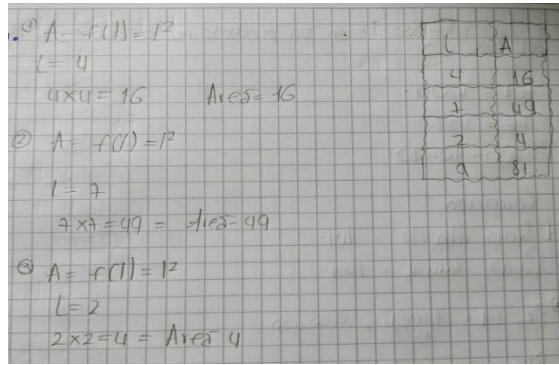 ① A = f(l) = l²
l = 4
4x4 = 16 Area = 16
② A = f(l) = l²
l = 7
7x7 = 49 = Area = 49
③ A = f(l) = l²
L = 2
2x2 = 4 = Area 4
L A
4 16
7 49
2 4
9 81